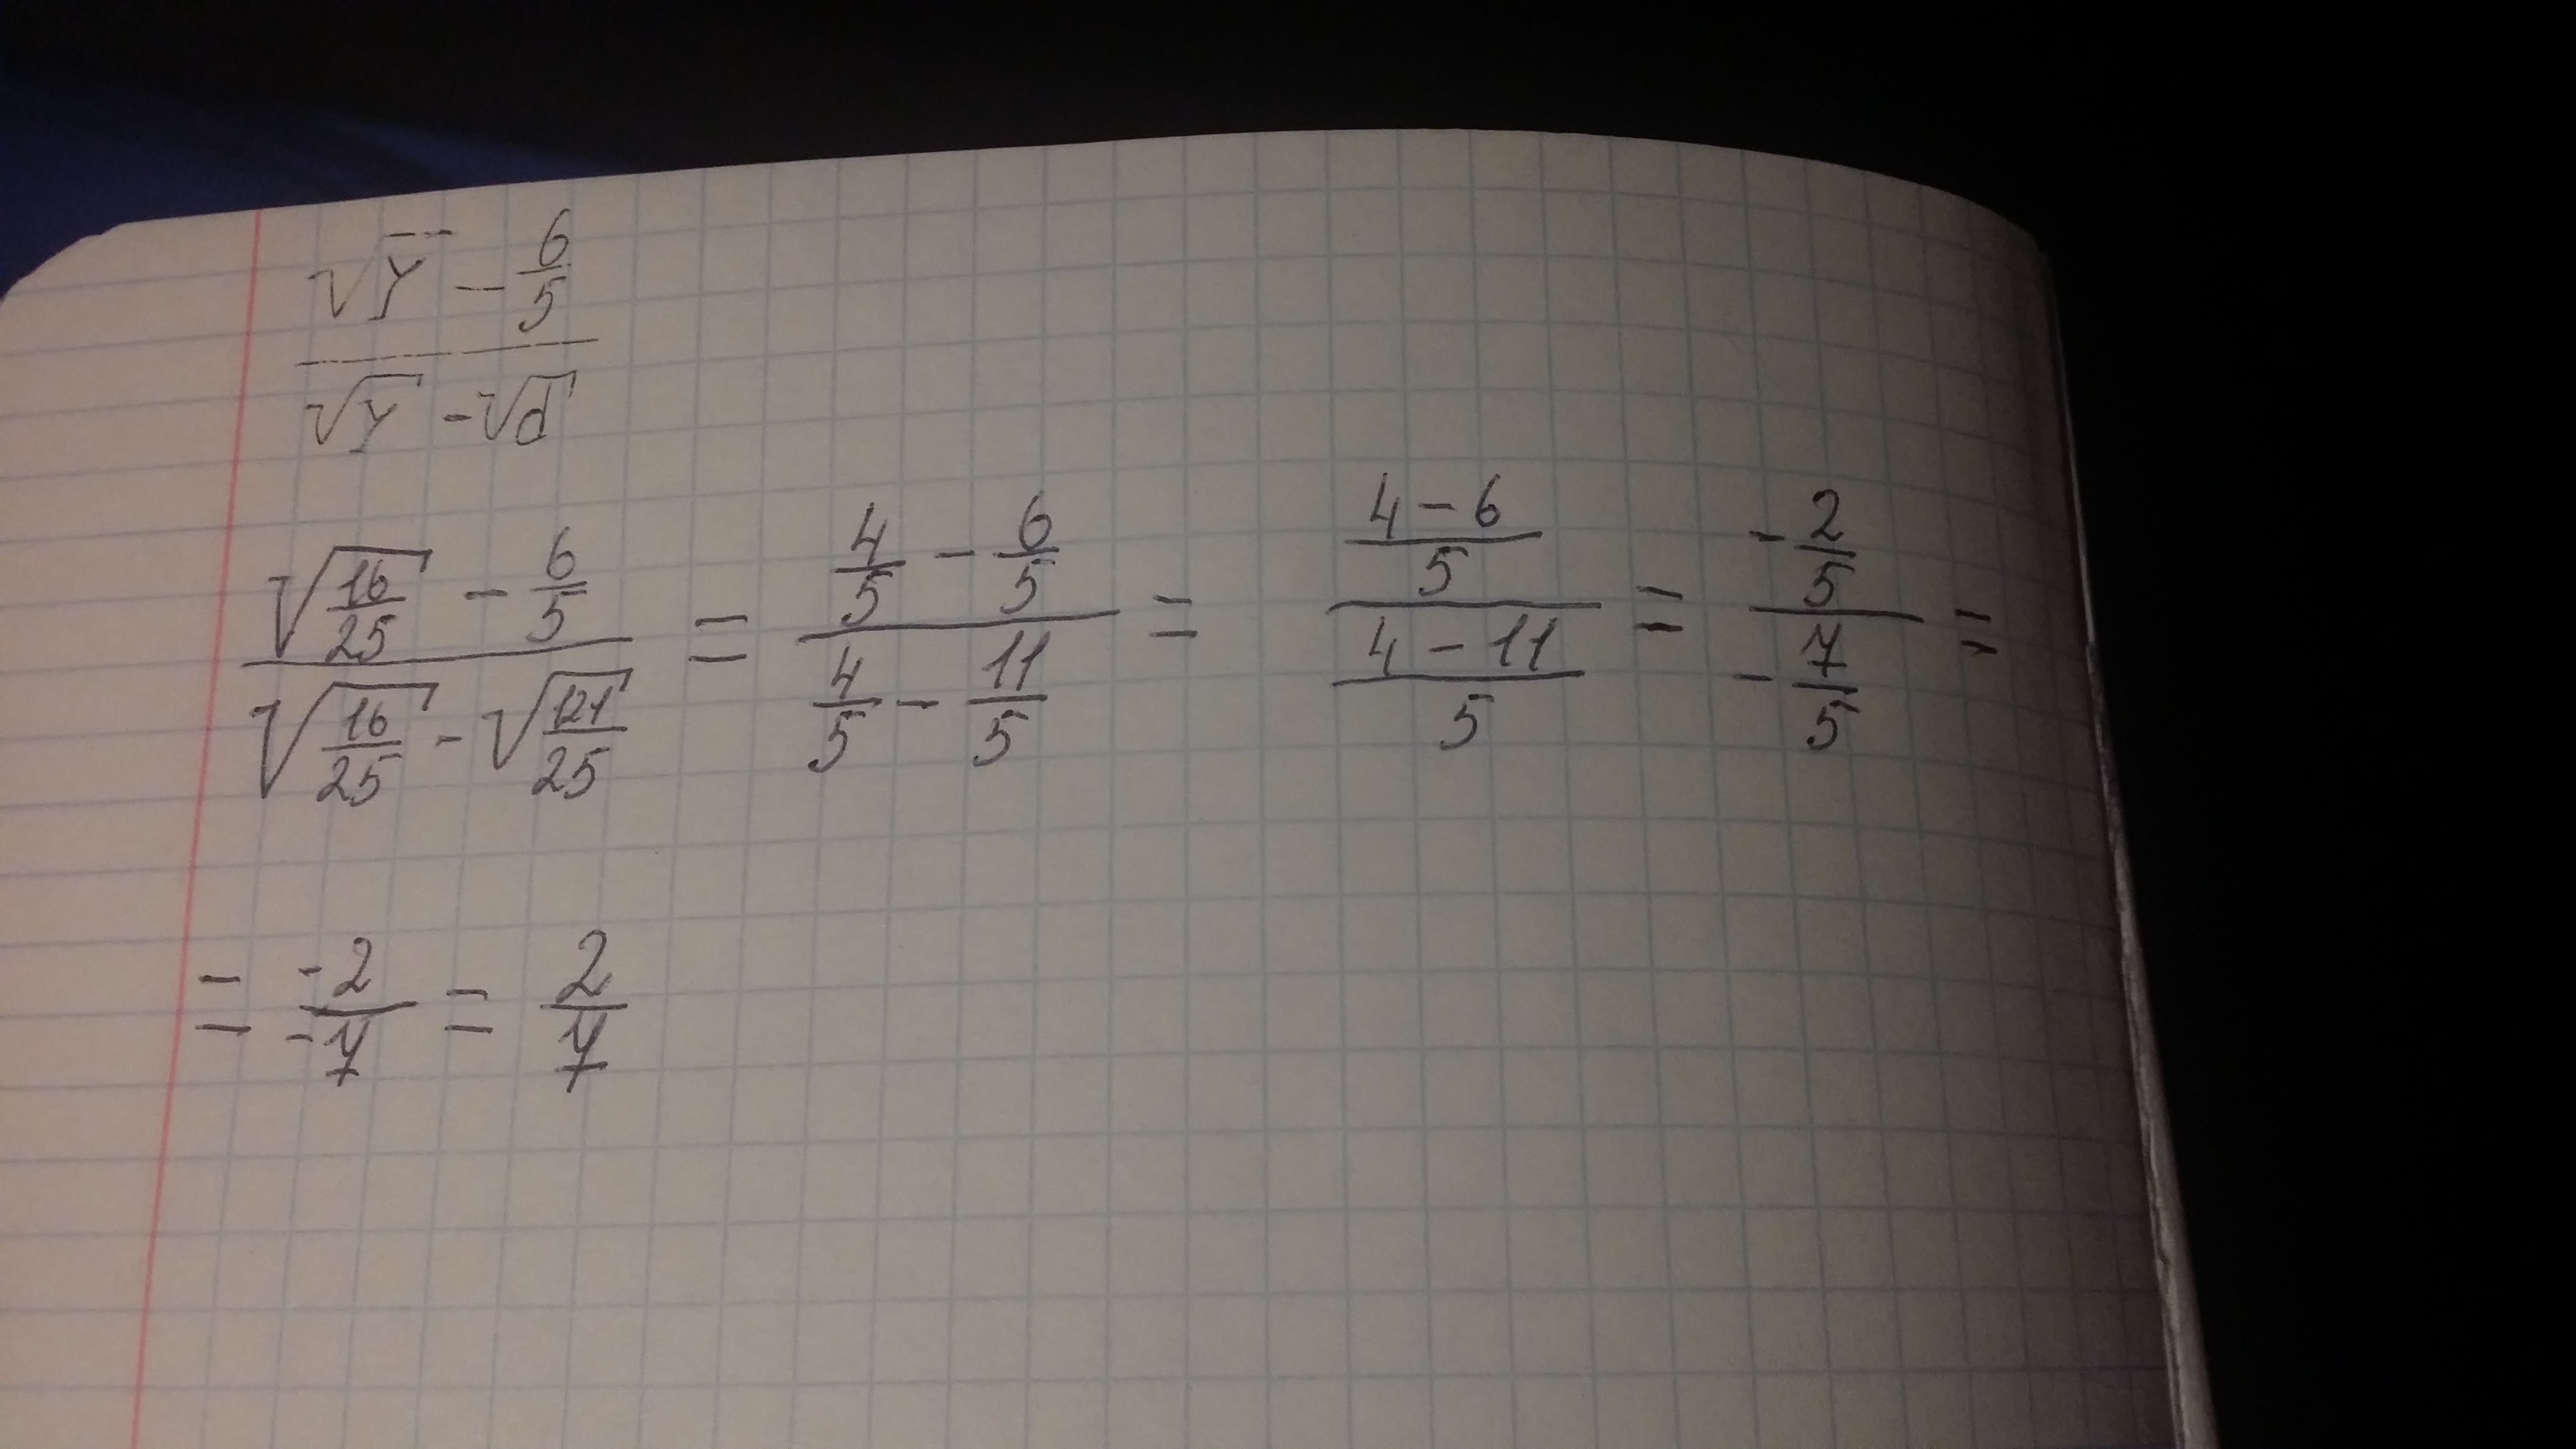 (√y - 6/5) / (√y - √d)
(√(16/25) - 6/5) / (√(16/25) - √(121/25)) = (4/5 - 6/5) / (4/5 - 11/5) = ((4 - 6)/5) / ((4 - 11)/5) = (-2/5) / (-7/5) =
= -2/-7 = 2/7